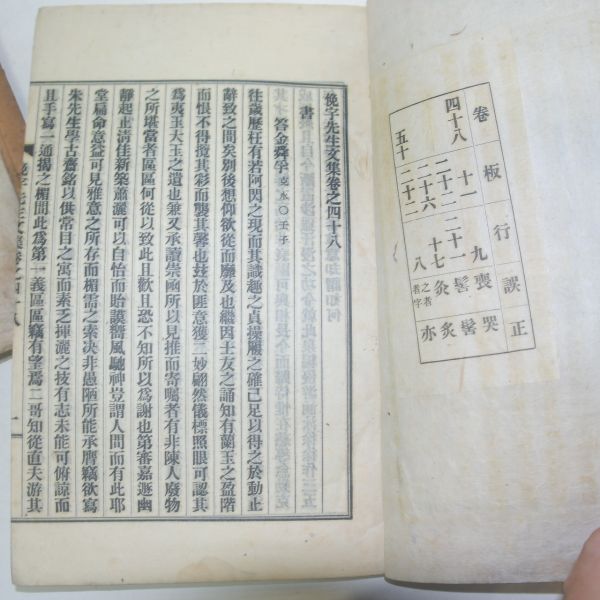 卷 板 行 誤 正
四十八 十一 九 喪 哭
二十二 二十一 髻
二十六 十七 灸 炙
五十 二十二 八 之者 者字 亦
俛宇先生文集卷之四十八
書
答金舜孚 克永○壬子
往歲歷枉有若阿閃之現而其識趣之貞操履之確已足以得之於動止
辭致之間矣別後想仰欲從而靡及也繼因士友之誦知有蘭玉之盈階
而恨不得攬其彩而襲其馨也玆於匪意獲二妙翩然儀標照眼可認其
爲夷玉大玉之遺也兼又承讀崇函所以見推而寄囑者有非陳人廢物
之所堪當者區區何從以致此且歡且恐不知所以爲謝也第審嘉遯幽
靜起止淸佳新築蕭灑可以自怡而貽謨嚮風馳神豈謂人間而有此耶
堂扁命意益可見雅意之所存而楣需之索決非愚陋所能承膺竊欲寫
朱先生學古齋銘以供常目之寓而素乏揮灑之技有志未能可俯諒而
且手寫一通揭之楣間此爲第一義區區竊有望焉二哥知從直夫游其
俛宇先生文集卷之四十八
一